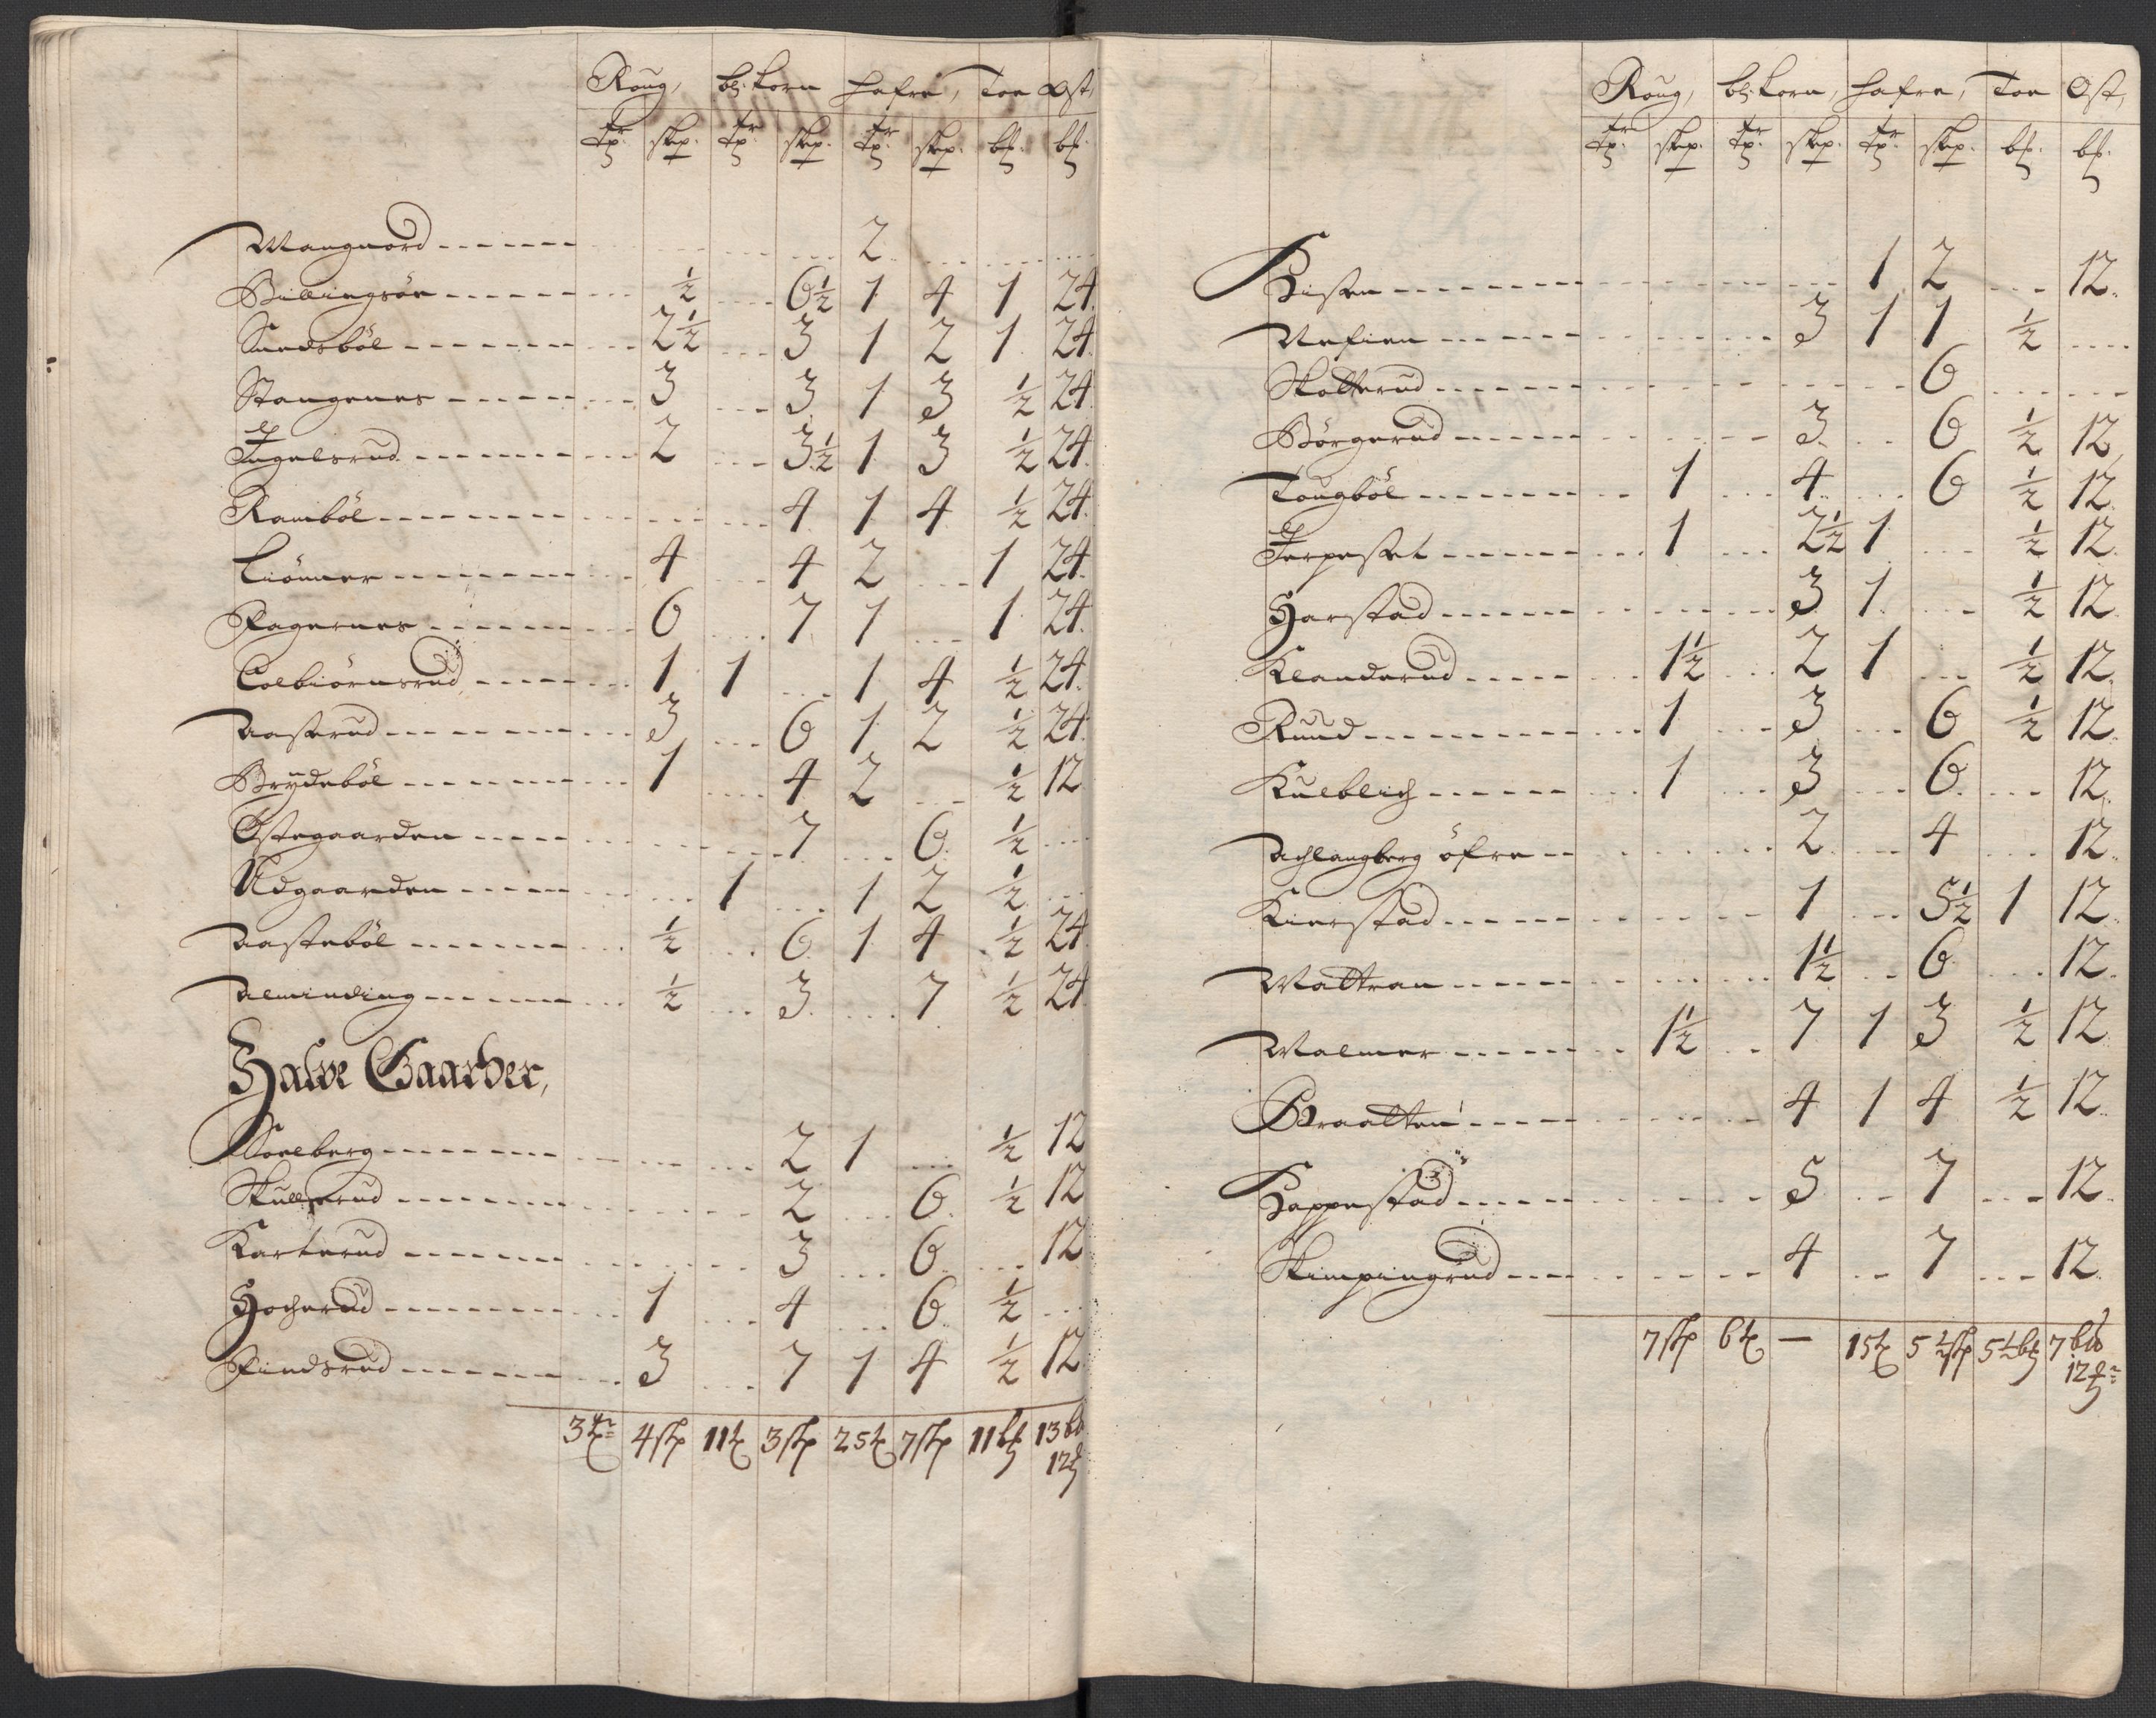 Roug, bl: korn hafre, Toe Ost,
Tp:r skp. Tp:r skp. Tp:r skp. bf. bf.
Wangnord - - - - - - 2
Billingsöe - - - - - - ½ 6½ 1 4 1 24.
Sundsböl - - - - - - 2½ 3 1 2 1 24.
Stangenes - - - - - - 3 3 1 3 ½ 24.
Ingelsrud - - - - - - 2 3½ 1 3 ½ 24.
Ramböl - - - - - - 4 1 4 ½ 24.
Liönner - - - - - - 4 4 2 1 24.
Fagernes - - - - - - 6 7 1 1 24.
Colbiörnsrud - - - - - 1 1 1 4 ½ 24.
Aasterud - - - - - - 3 6 1 2 ½ 24.
Brÿdeböl - - - - - - 1 4 2 ½ 12
Østegaarden - - - - - 7 6 ½
Udgaarden - - - - - 1 1 2 ½
Aasteböl - - - - - - ½ 6 1 4 ½ 24
Alminding - - - - - - ½ 3 7 ½ 24
Halve Gaarder,
Soelberg - - - - - - 2 1 ½ 12
Skullerud - - - - - - 2 6 ½ 12
Karterud - - - - - - 3 6 12
Hocherud - - - - - - 1 4 6 ½
Findsrud - - - - - - 3 7 1 4 ½ 12
3 tr 4 skp 11 t 3 skp 25 t 7 skp 11 bf 13 bf
12
Roug, bl: korn, hafre, Toe Ost,
Tp:r skp. Tp:r skp. Tp:r skp. bf. bf.
Histen - - - - - - 1 2 12.
Nefien - - - - - - 3 1 1 ½
Skatterud - - - - - - 6
Börgerud - - - - - - 3 6 ½ 12
Tougböl - - - - - - 1 4 6 ½ 12
Jerpeset - - - - - - 1 2½ 1 ½ 12
Harstad - - - - - - 3 1 ½ 12
Klanderud - - - - - 1½ 2 1 ½ 12
Ruud - - - - - - 1 3 6 ½ 12
Kulblich - - - - - - 1 3 6 12
Achlangberg öfre - - 2 4 12
Kierstad - - - - - 1 5½ 1 12
Wattran - - - - - 1½ 6 12
Walmer - - - - - 1½ 7 1 3 ½ 12
Braatten - - - - - 4 1 4 ½ 12
Happestad - - - - - 5 7 12
Skimpingrud - - - - 4 7 12
7 skp 6 t — 15 t 5½ skp 5½ bf 7 bf
12